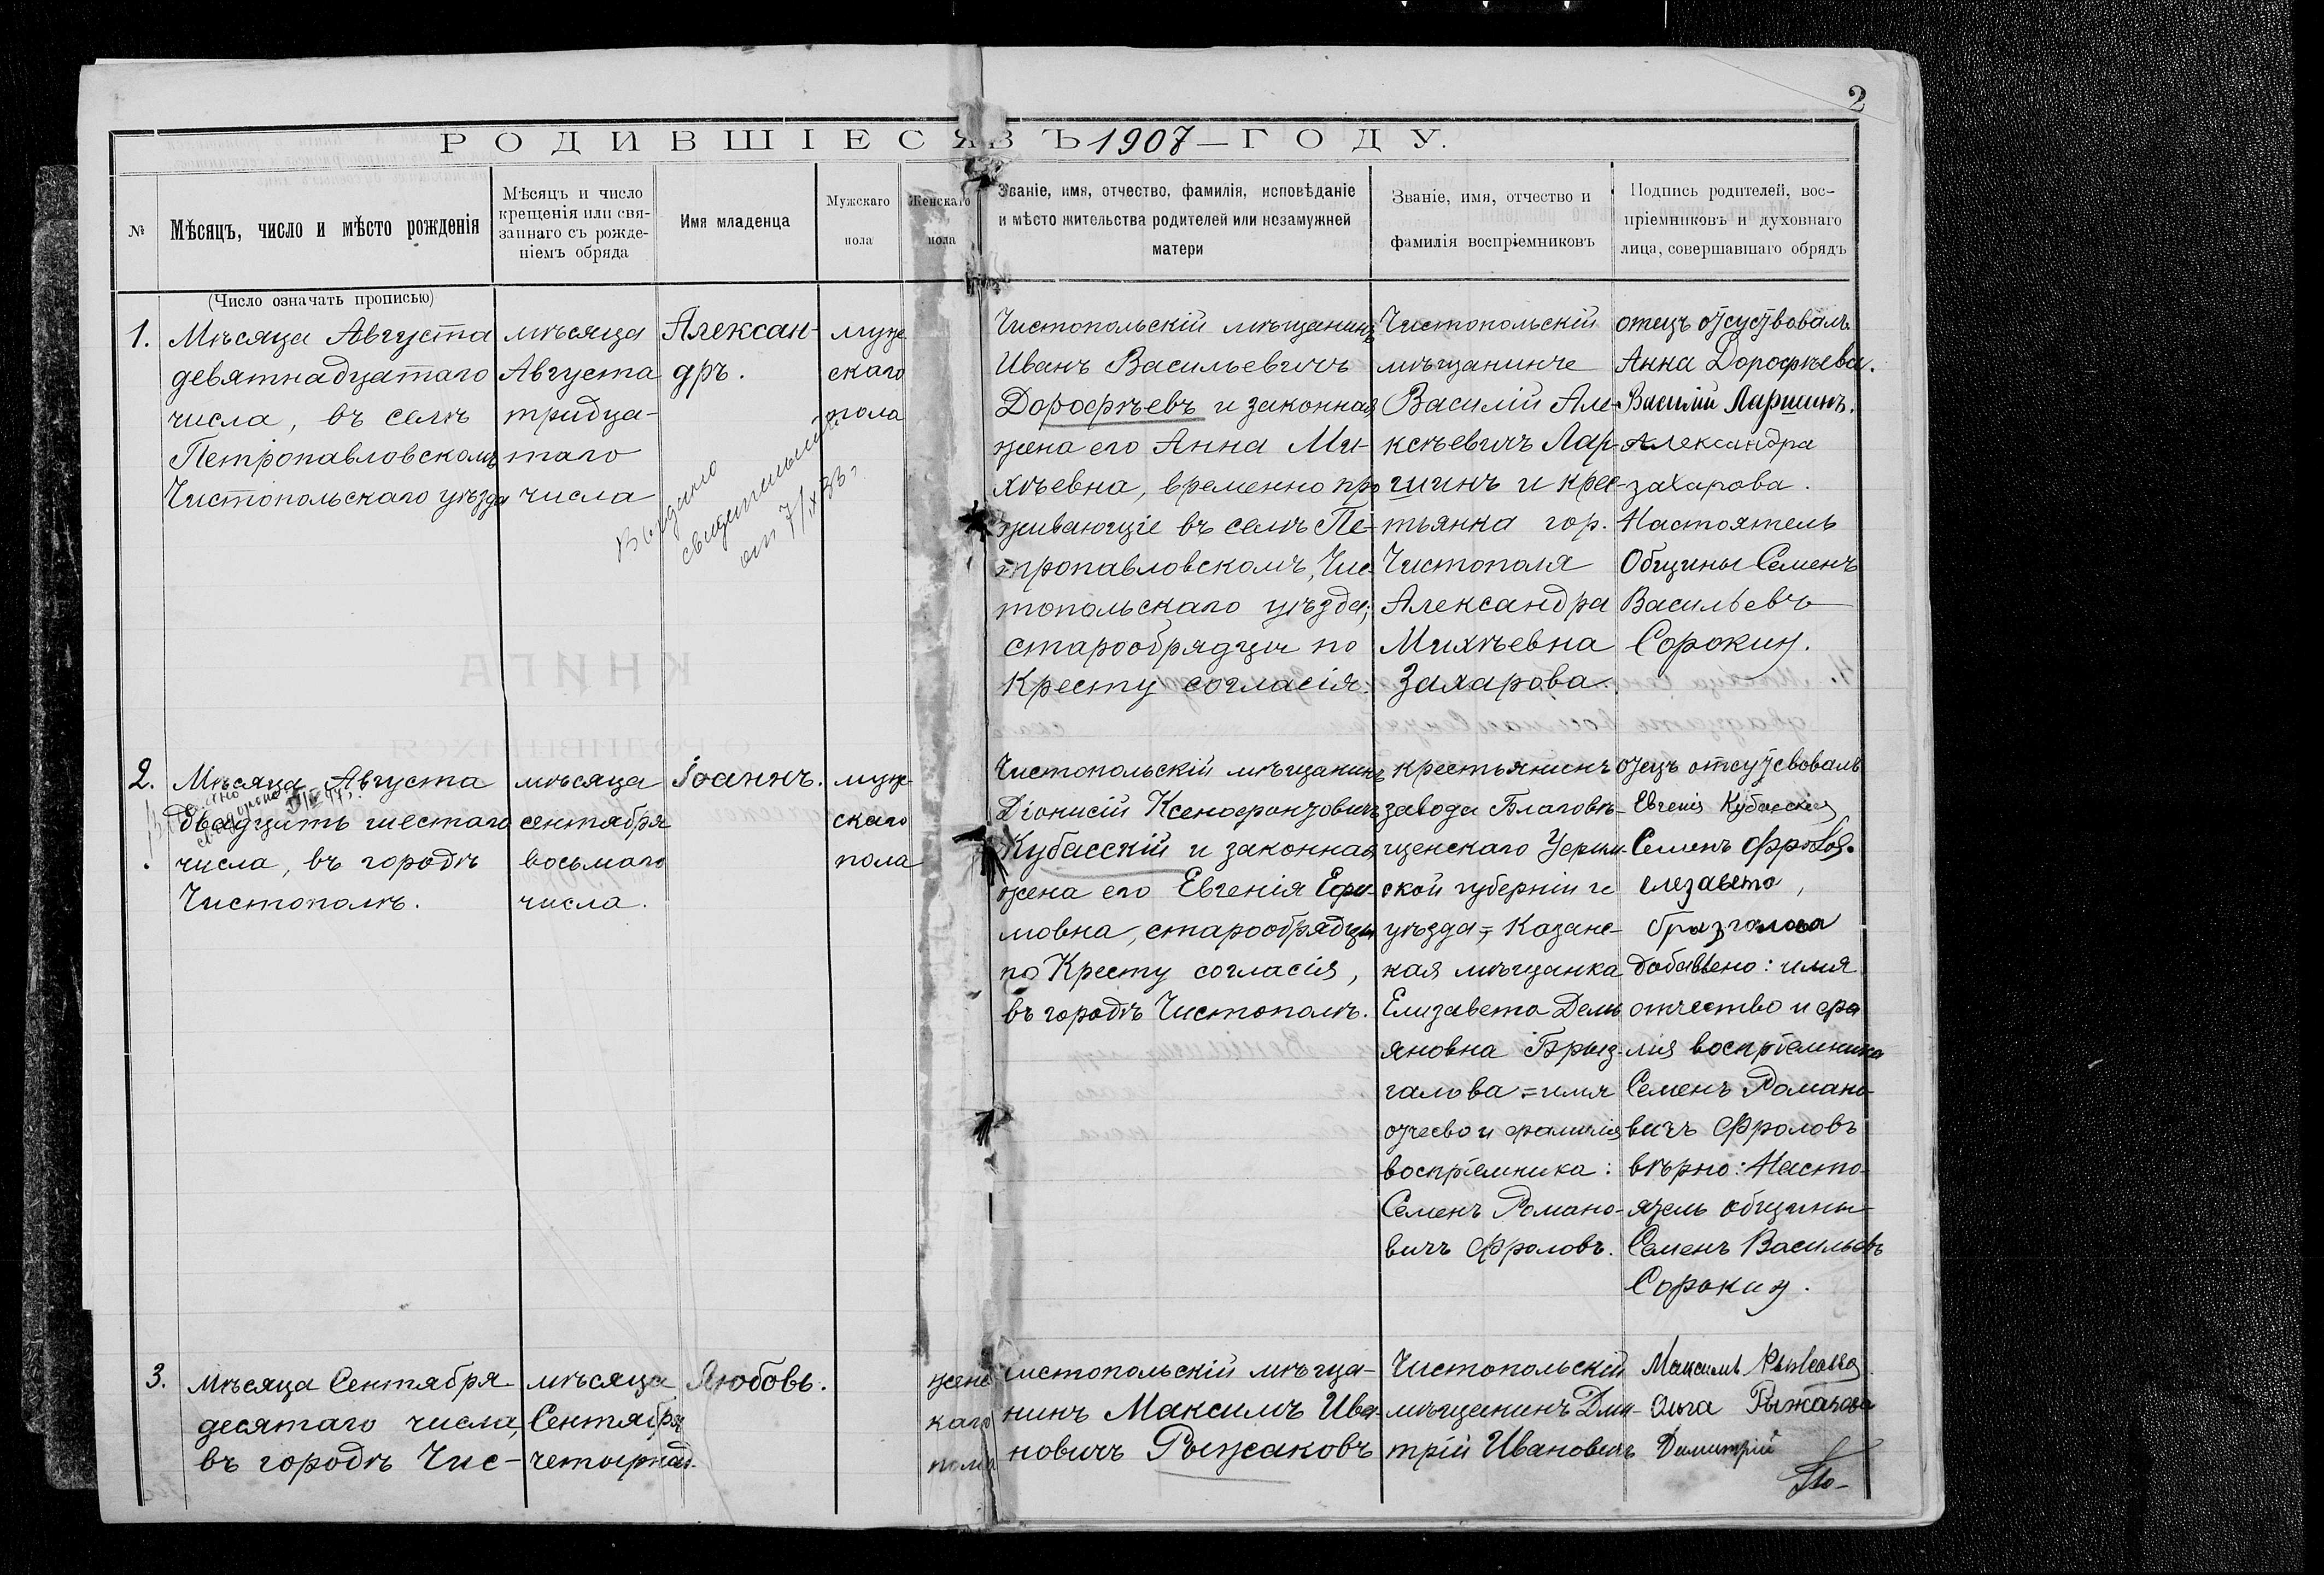 2
РОДИВШІЕСЯ ВЪ 1907 — ГОДУ.
№
Мѣсяцъ, число и мѣсто рожденія
Мѣсяцъ и число
крещенія или свя-
заннаго съ рожде-
ніемъ обряда
Имя младенца
Мужскаго
пола
Женскаго
пола
Званіе, имя, отчество, фамилія, исповѣданіе
и мѣсто жительства родителей или незамужней
матери
Званіе, имя, отчество и
фамилія воспріемниковъ
Подпись родителей, вос-
пріемниковъ и духовнаго
лица, совершавшаго обрядъ
(Число означать прописью)
1.
Мѣсяца Августа
девятнадцатаго
числа, въ селѣ
Петропавловскомъ
Чистопольскаго уѣзда
мѣсяца
Августа
тридца-
таго
числа
Алексан-
дръ.
Выдано
свидетельство
от 7/X 33 г.
муж-
скаго
пола
Чистопольскій мѣщанинъ
Иванъ Васильевичъ
Дорофѣевъ и законная
жена его Анна Ми-
хѣевна, временно про
живающіе въ селѣ Пе-
тропавловскомъ, Чис-
топольскаго уѣзда,
старообрядцы по
Кресту согласія.
Чистопольскій
мѣщанинъ
Василій Але-
ксѣевичъ Лар-
шинъ и крес-
тьянка гор.
Чистополя
Александра
Михѣевна
Захарова.
отецъ отсуствовалъ
Анна Дорофѣева.
Василій Ларшинъ.
Александра
захарова.
Настоятель
Общины Семенъ
Васильевъ
Сорокин.
2.
Мѣсяца Августа
двадцать шестаго
числа, въ городѣ
Чистополѣ.
мѣсяца
сентября
восьмаго
числа.
Іоаннъ.
муж-
скаго
пола
Чистопольскій мѣщанинъ
Діонисій Ксенофонтовичъ
Кубасскій и законная
жена его Евгенія Ефи-
мовна, старообрядцы
по Кресту согласія,
въ городѣ Чистополѣ.
крестьянинъ
завода Благовѣ-
щенскаго Уфим-
ской губерніи и
уѣзда, Казанс-
кая мѣщанка
Елизавета Демь
яновна Брыз-
галова = имя
отчесво и фамилія
воспріемника:
Семенъ Романо-
вичъ Фроловъ.
отецъ отсутсвовалъ
Евгенія Кубасскія
Семенъ Фролов.
елезавета
брызгалова
Добавлено: имя
отчество и фа
лия воспріемника
Семенъ Романо-
вичъ Фроловъ
вѣрно: Насто-
ятель общины
Семенъ Васильевъ
Сорокин.
3.
Мѣсяца Сентября
десятаго числа,
въ городѣ Чис-
мѣсяца
Сентября
четырнад-
Любовь.
женс
каго
пола
чистопольскій мѣща-
нинъ Максимъ Ива-
новичъ Рыжаковъ
Чистопольскій
мѣщанинъ Дми-
трій Ивановичъ
Максимъ Рыжаковъ
Ольга Рыжакова
Димитрій